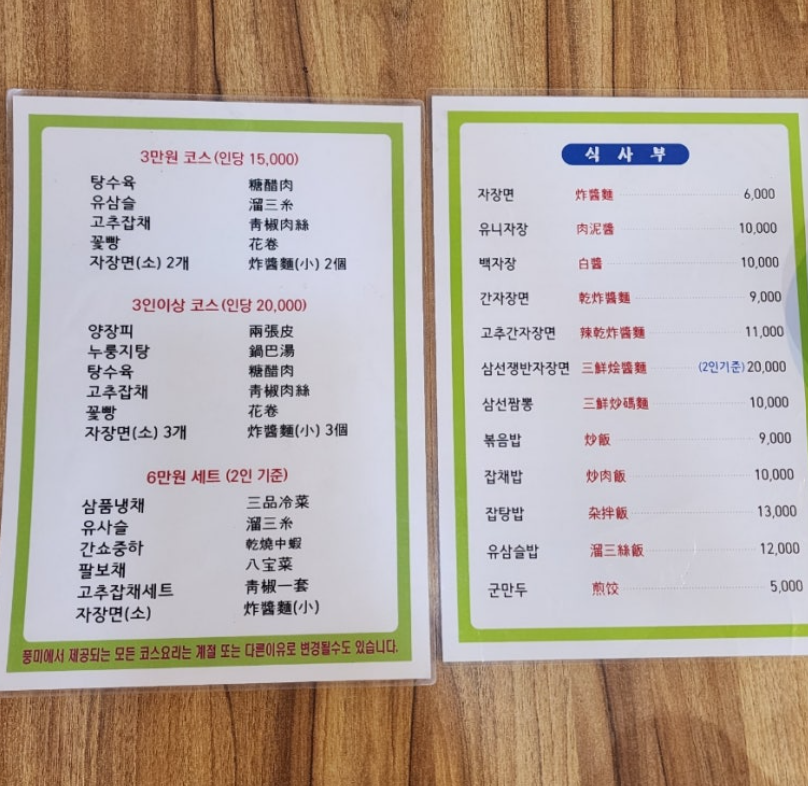 3만원 코스(인당 15,000)
탕수육 糖醋肉
유삼슬 溜三糸
고추잡채 靑椒肉絲
꽃빵 花卷
자장면(소) 2개 炸醬麵(小) 2個
3인이상 코스(인당 20,000)
양장피 兩張皮
누룽지탕 鍋巴湯
탕수육 糖醋肉
고추잡채 靑椒肉絲
꽃빵 花卷
자장면(소) 3개 炸醬麵(小) 3個
6만원 세트 (2인 기준)
삼품냉채 三品冷菜
유사슬 溜三糸
간쇼중하 乾燒中蝦
팔보채 八宝菜
고추잡채세트 靑椒一套
자장면(소) 炸醬麵(小)
풍미에서 제공되는 모든 코스요리는 계절 또는 다른이유로 변경될수도 있습니다.
식 사 부
자장면 炸醬麵 6,000
유니자장 肉泥醬 10,000
백자장 白醬 10,000
간자장면 乾炸醬麵 9,000
고추간자장면 辣乾炸醬麵 11,000
삼선쟁반자장면 三鮮烩醬麵 (2인기준) 20,000
삼선짬뽕 三鮮炒碼麵 10,000
볶음밥 炒飯 9,000
잡채밥 炒肉飯 10,000
잡탕밥 杂拌飯 13,000
유삼슬밥 溜三絲飯 12,000
군만두 煎饺 5,000